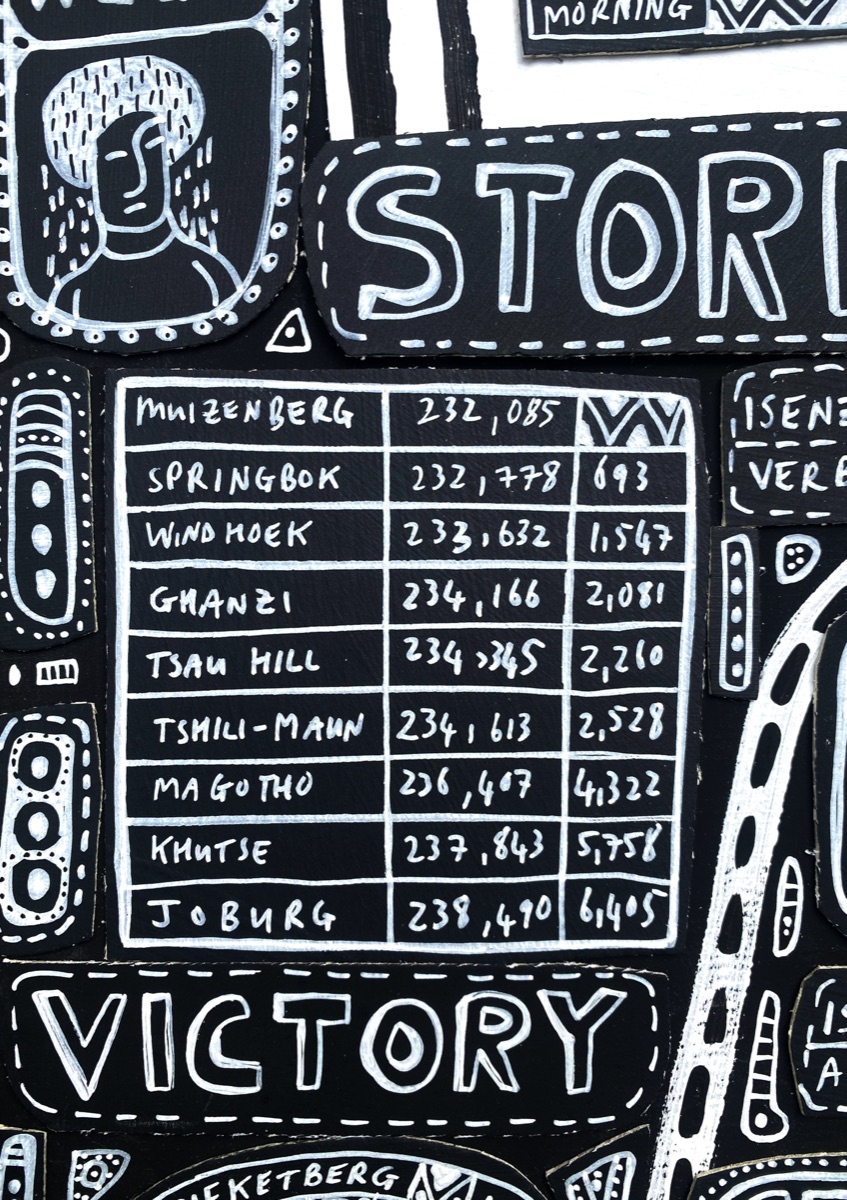 MORNING
STOR
MUIZENBERG 232,085
SPRINGBOK 232,778 693
WINDHOEK 233,632 1,547
GHANZI 234,166 2,081
TSAU HILL 234,345 2,260
TSHILI-MAUN 234,613 2,528
MAGOTHO 236,407 4,322
KHUTSE 237,843 5,758
JOBURG 238,490 6,405
ISENZ
VERB
VICTORY
IS
A
IEKETBERG